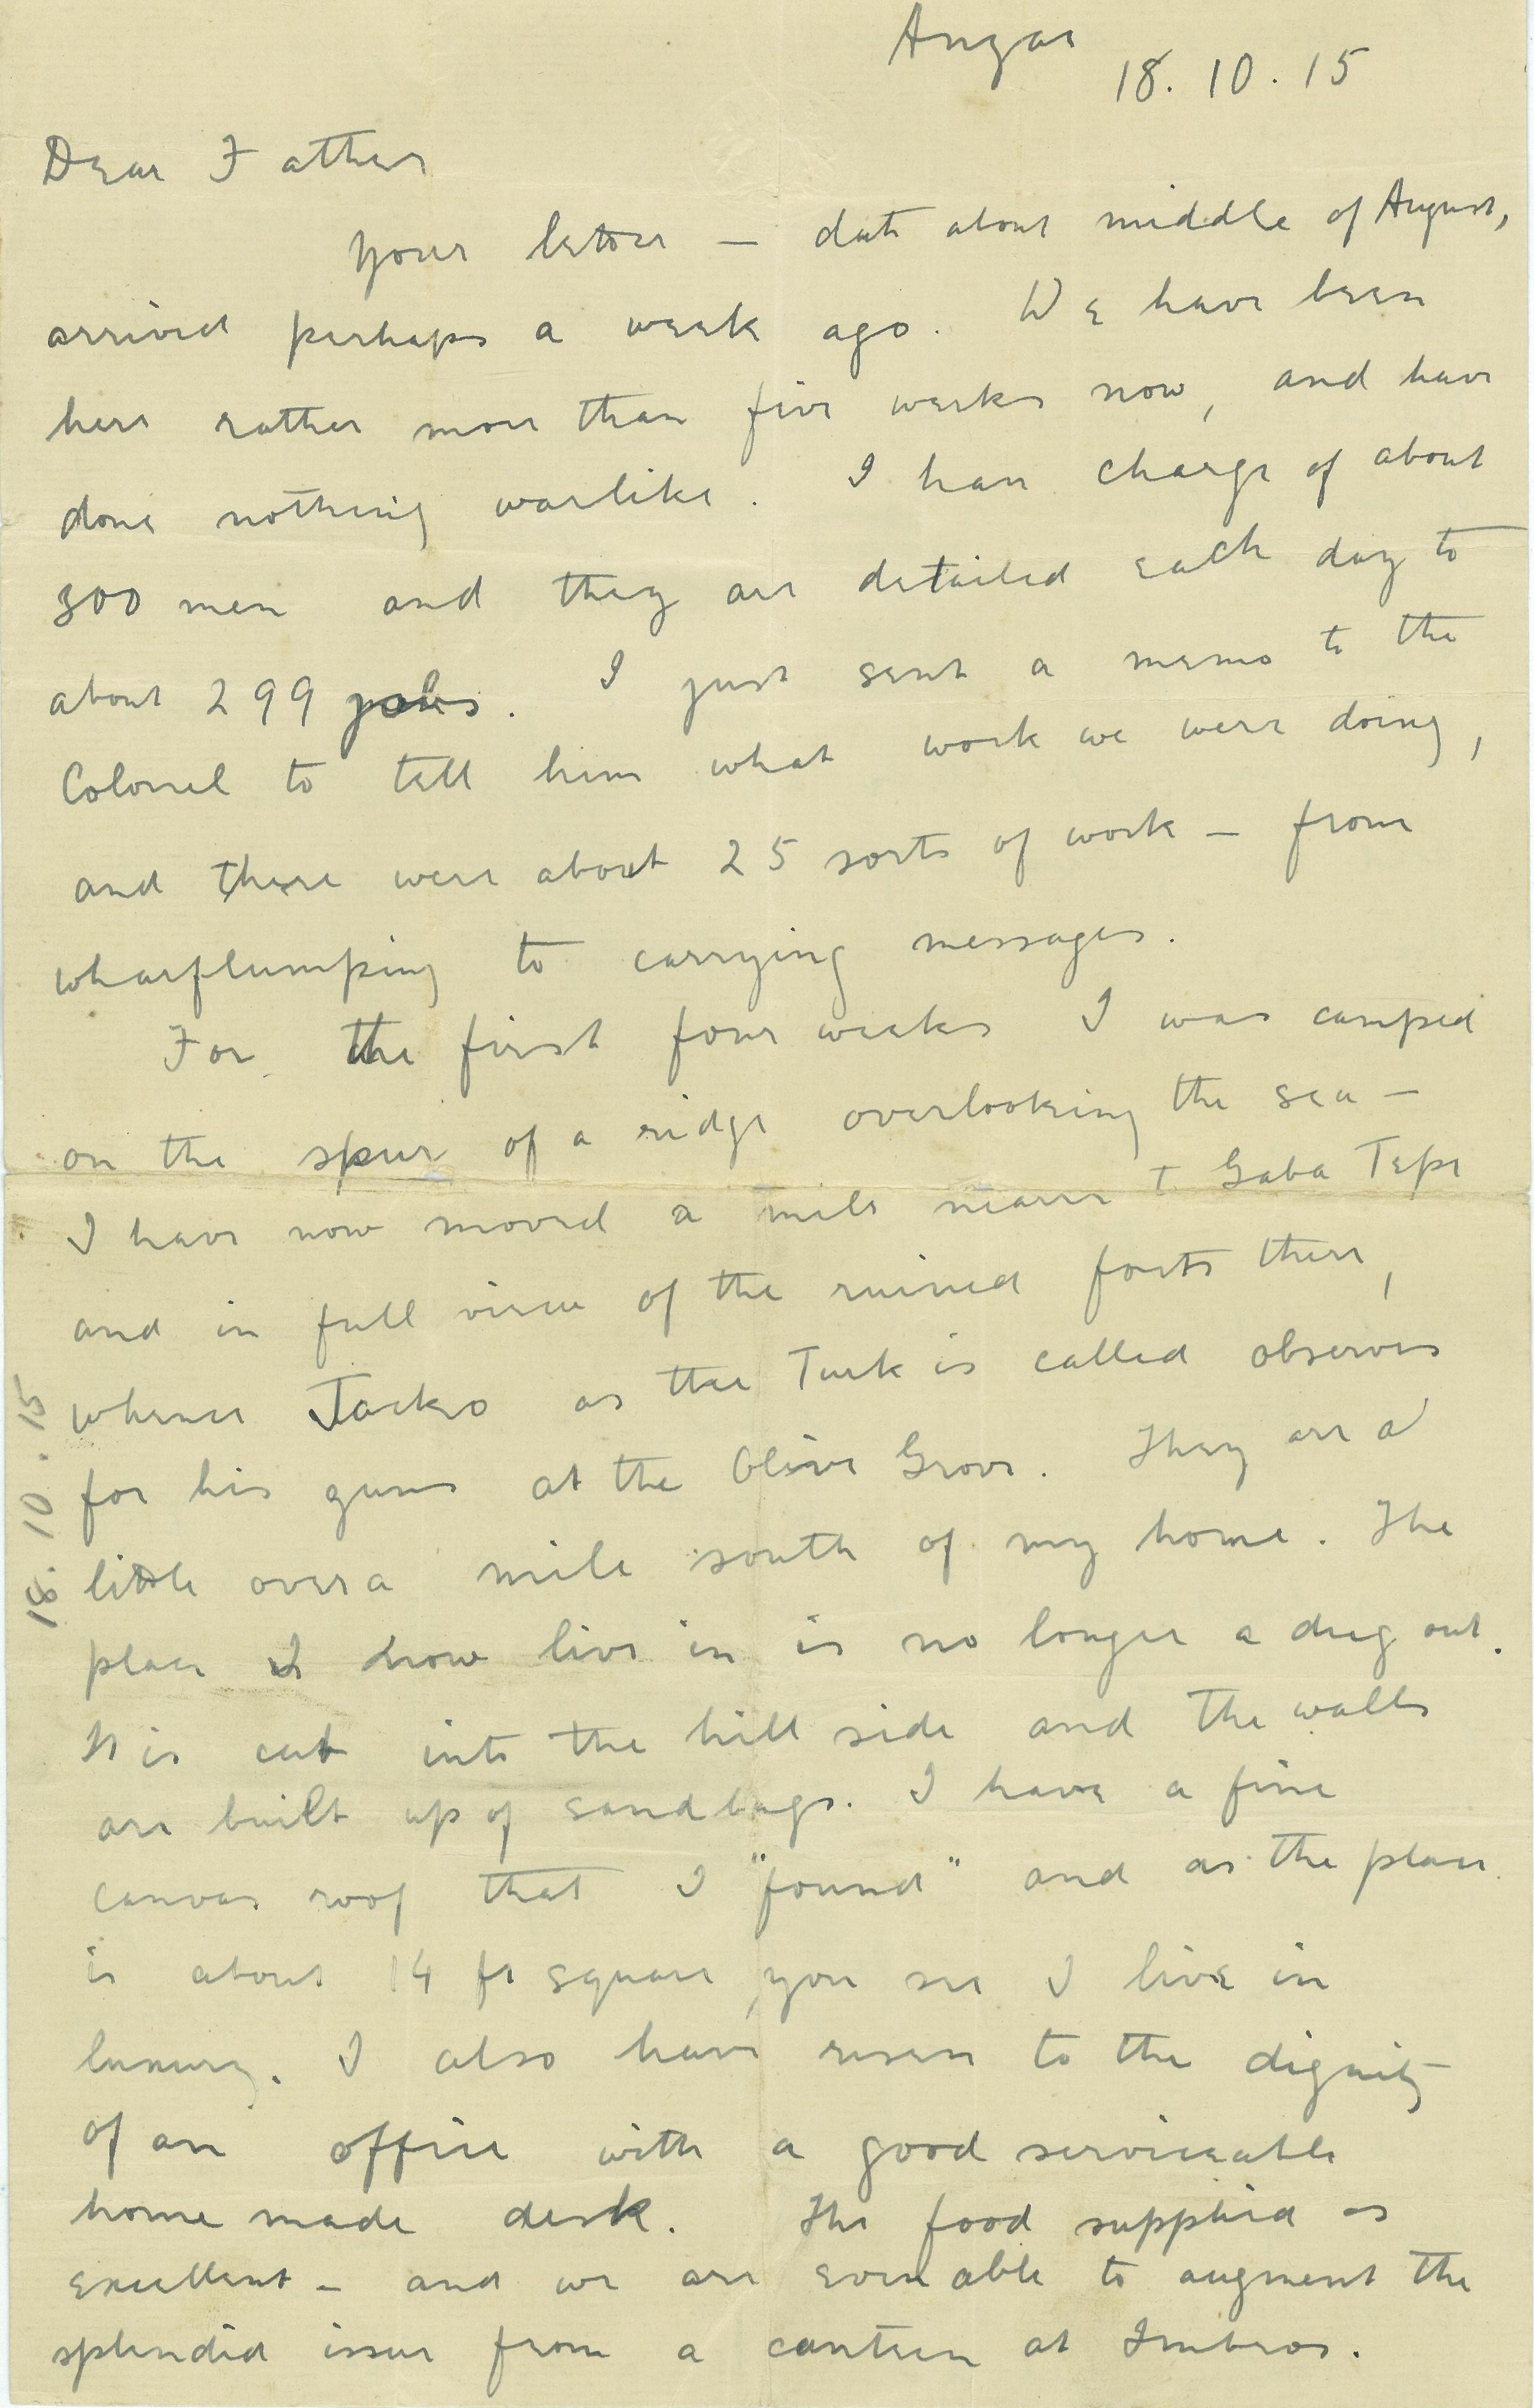 Anzac
18.10.15
Dear Father
Your letter – date about middle of August,
arrived perhaps a week ago. We have been
here rather more than five weeks now, and have
done nothing warlike. I have charge of about
300 men and they are detailed each day to
about 299 jobs. I just sent a memo to the
Colonel to tell him what work we were doing,
and there were about 25 sorts of work – from
wharflumping to carrying messages.
For the first four weeks I was camped
on the spur of a ridge overlooking the sea –
I have now moved a mile nearer to Gaba Tepe
and in full view of the ruined forts there,
whence Jacko as the Turk is called observes
for his guns at the Olive Grove. They are a
little over a mile south of my home. The
place I now live in is no longer a dug out.
It is cut into the hill side and the walls
are built up of sandbags. I have a fine
canvas roof that I "found" and as the place
is about 14 ft square you see I live in
luxury. I also have risen to the dignity
of an office with a good serviceable
home made desk. The food supplied is
excellent – and we are even able to augment the
splendid issue from a canteen at Imbros.
18.10.15